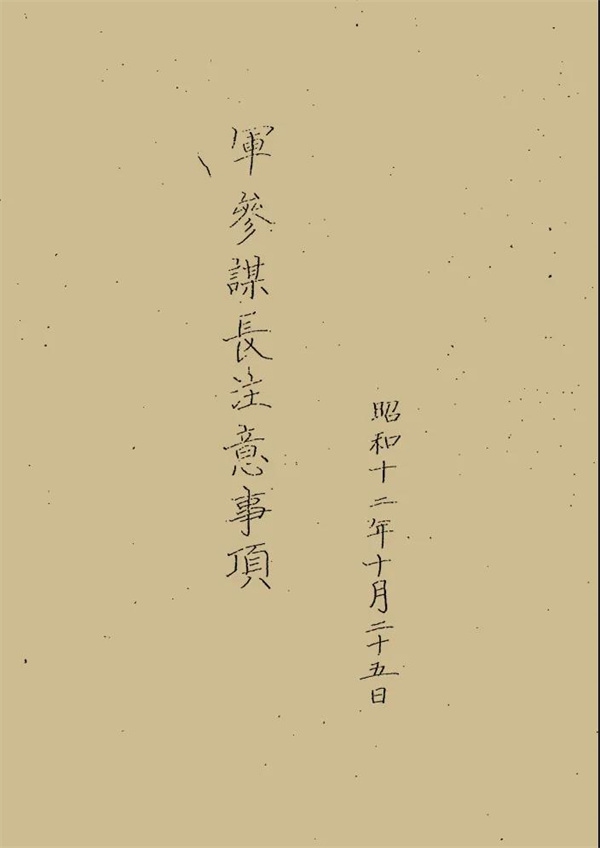 昭和十二年十月二十五日
軍參謀長注意事項